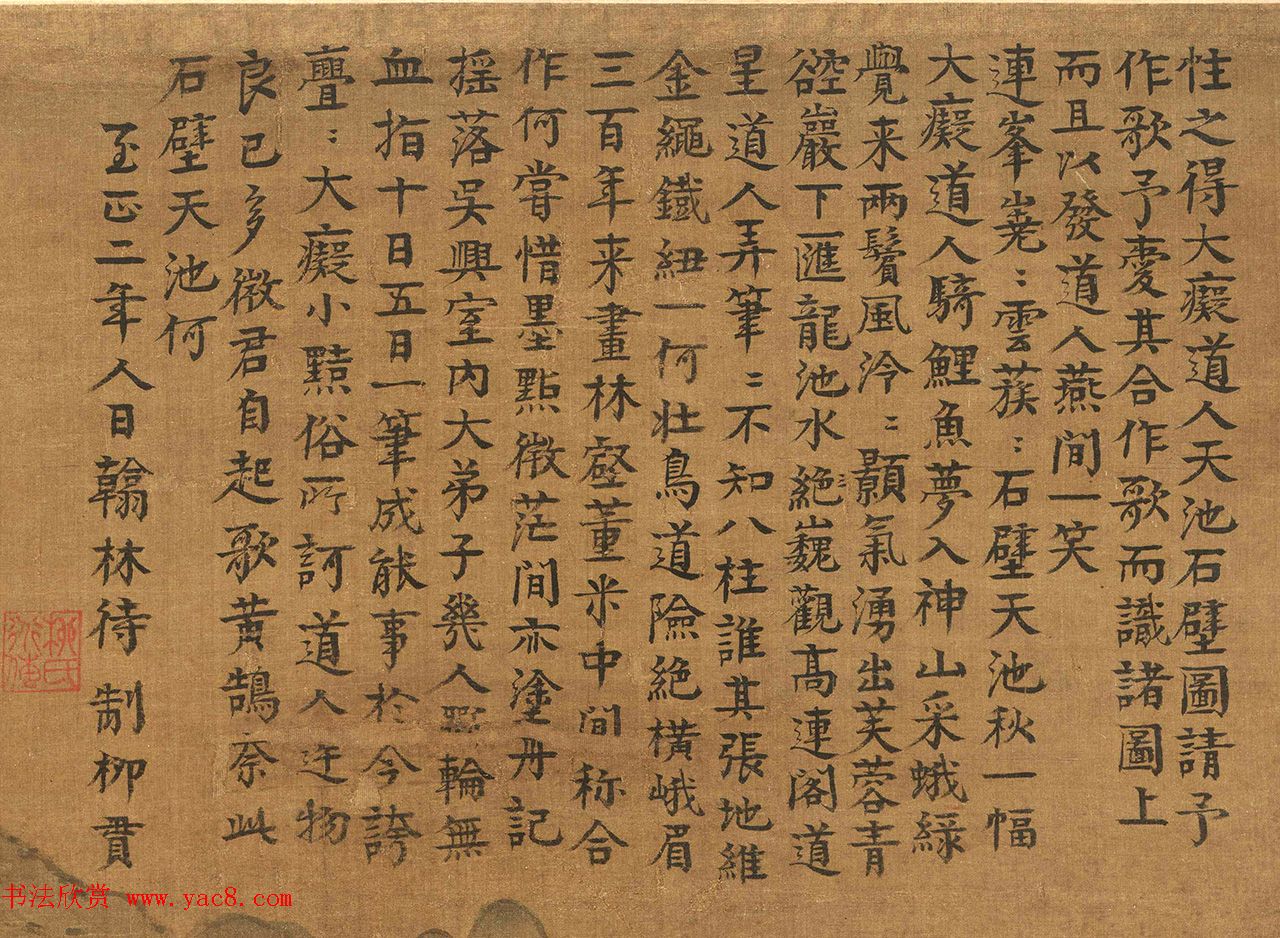 性之得大癡道人天池石壁圖請予
作歌予愛其合作歌而識諸圖上
而且以發道人燕間一笑
連峯嶤〻雲蔟〻石壁天池秋一幅
大癡道人騎鯉魚夢入神山采蛾緑
覺来兩鬢風泠〻顥氣湧出芙蓉青
巖下一匯龍池水絶巍觀高連閣道
星道人弄筆〻不知八柱誰其張地維
金繩鐵紐一何壯鳥道險絶橫峨眉
三百年来畫林壑董米中間称合
作何嘗惜墨點微茫間亦塗丹記
揺落吴興室内大弟子幾人斲輪無
血指十日五日一筆成能事於今誇
亹〻大癡小黠俗所訶道人迕物
良已多微君自起歌黄鵠奈此
石壁天池何
至正二年人日翰林待制柳貫
柳氏
书法欣赏 www.yac8.com